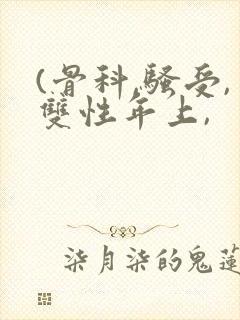 (骨科,骚受,
双性年上,
柒月柒的鬼莲